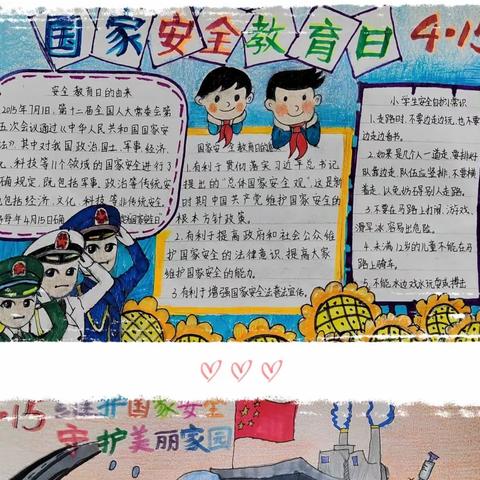 国家安全教育日 4.15
安全教育日的由来
2015年7月1日，第十二届全国人大常委会第
五次会议通过《中华人民共和国国家安
法》，其中对我国政治，国土，军事，经济，
化，科技等11个领域的国家安全进行了
确规定，既包括军事，政治等传统安
包括经济，文化，科技等非传统安全，
每年4月15日确
国家安全教育日的
1.有利于贯彻落实习近平总书记
提出的“总体国家安全观，”这是新
时期中国共产党维护国家安全的
根本方针政策。
2.有利于提高政府和社会公众维
护国家安全的法律意识，提高大家
维护国家安全的能力。
3.有利于增强国家安全法普法宣传。
小学生安全自护小常识
1.走路时，不要边走边玩，也不要
边走边看书。
2.如果是几个人一起走，要排好
队靠边走，队伍应竖排，不要横
着走，以免妨碍别人走路。
3.不要在马路上打闹，游戏，
滑旱冰，容易出危险。
4.未满12岁的儿童不能在马
路上骑车。
5.不能水边戏水玩耍或搏击
4.15
维护国家安全
守护美丽家园